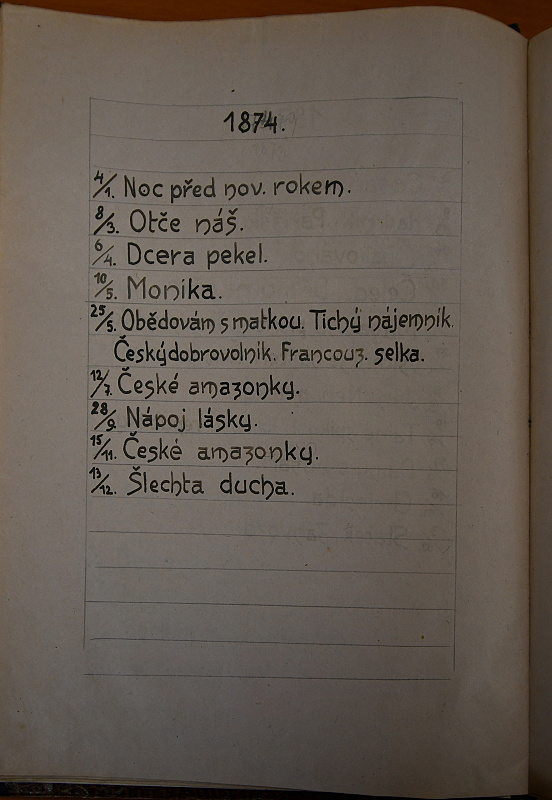 1874.
4/1. Noc před nov. rokem.
8/3. Otče náš.
6/4. Dcera pekel.
10/5. Monika.
25/5. Obědovám s matkou. Tichý nájemník.
Český dobrovolník. Francouz. selka.
12/7. České amazonky.
28/9. Nápoj lásky.
15/11. České amazonky.
13/12. Šlechta ducha.